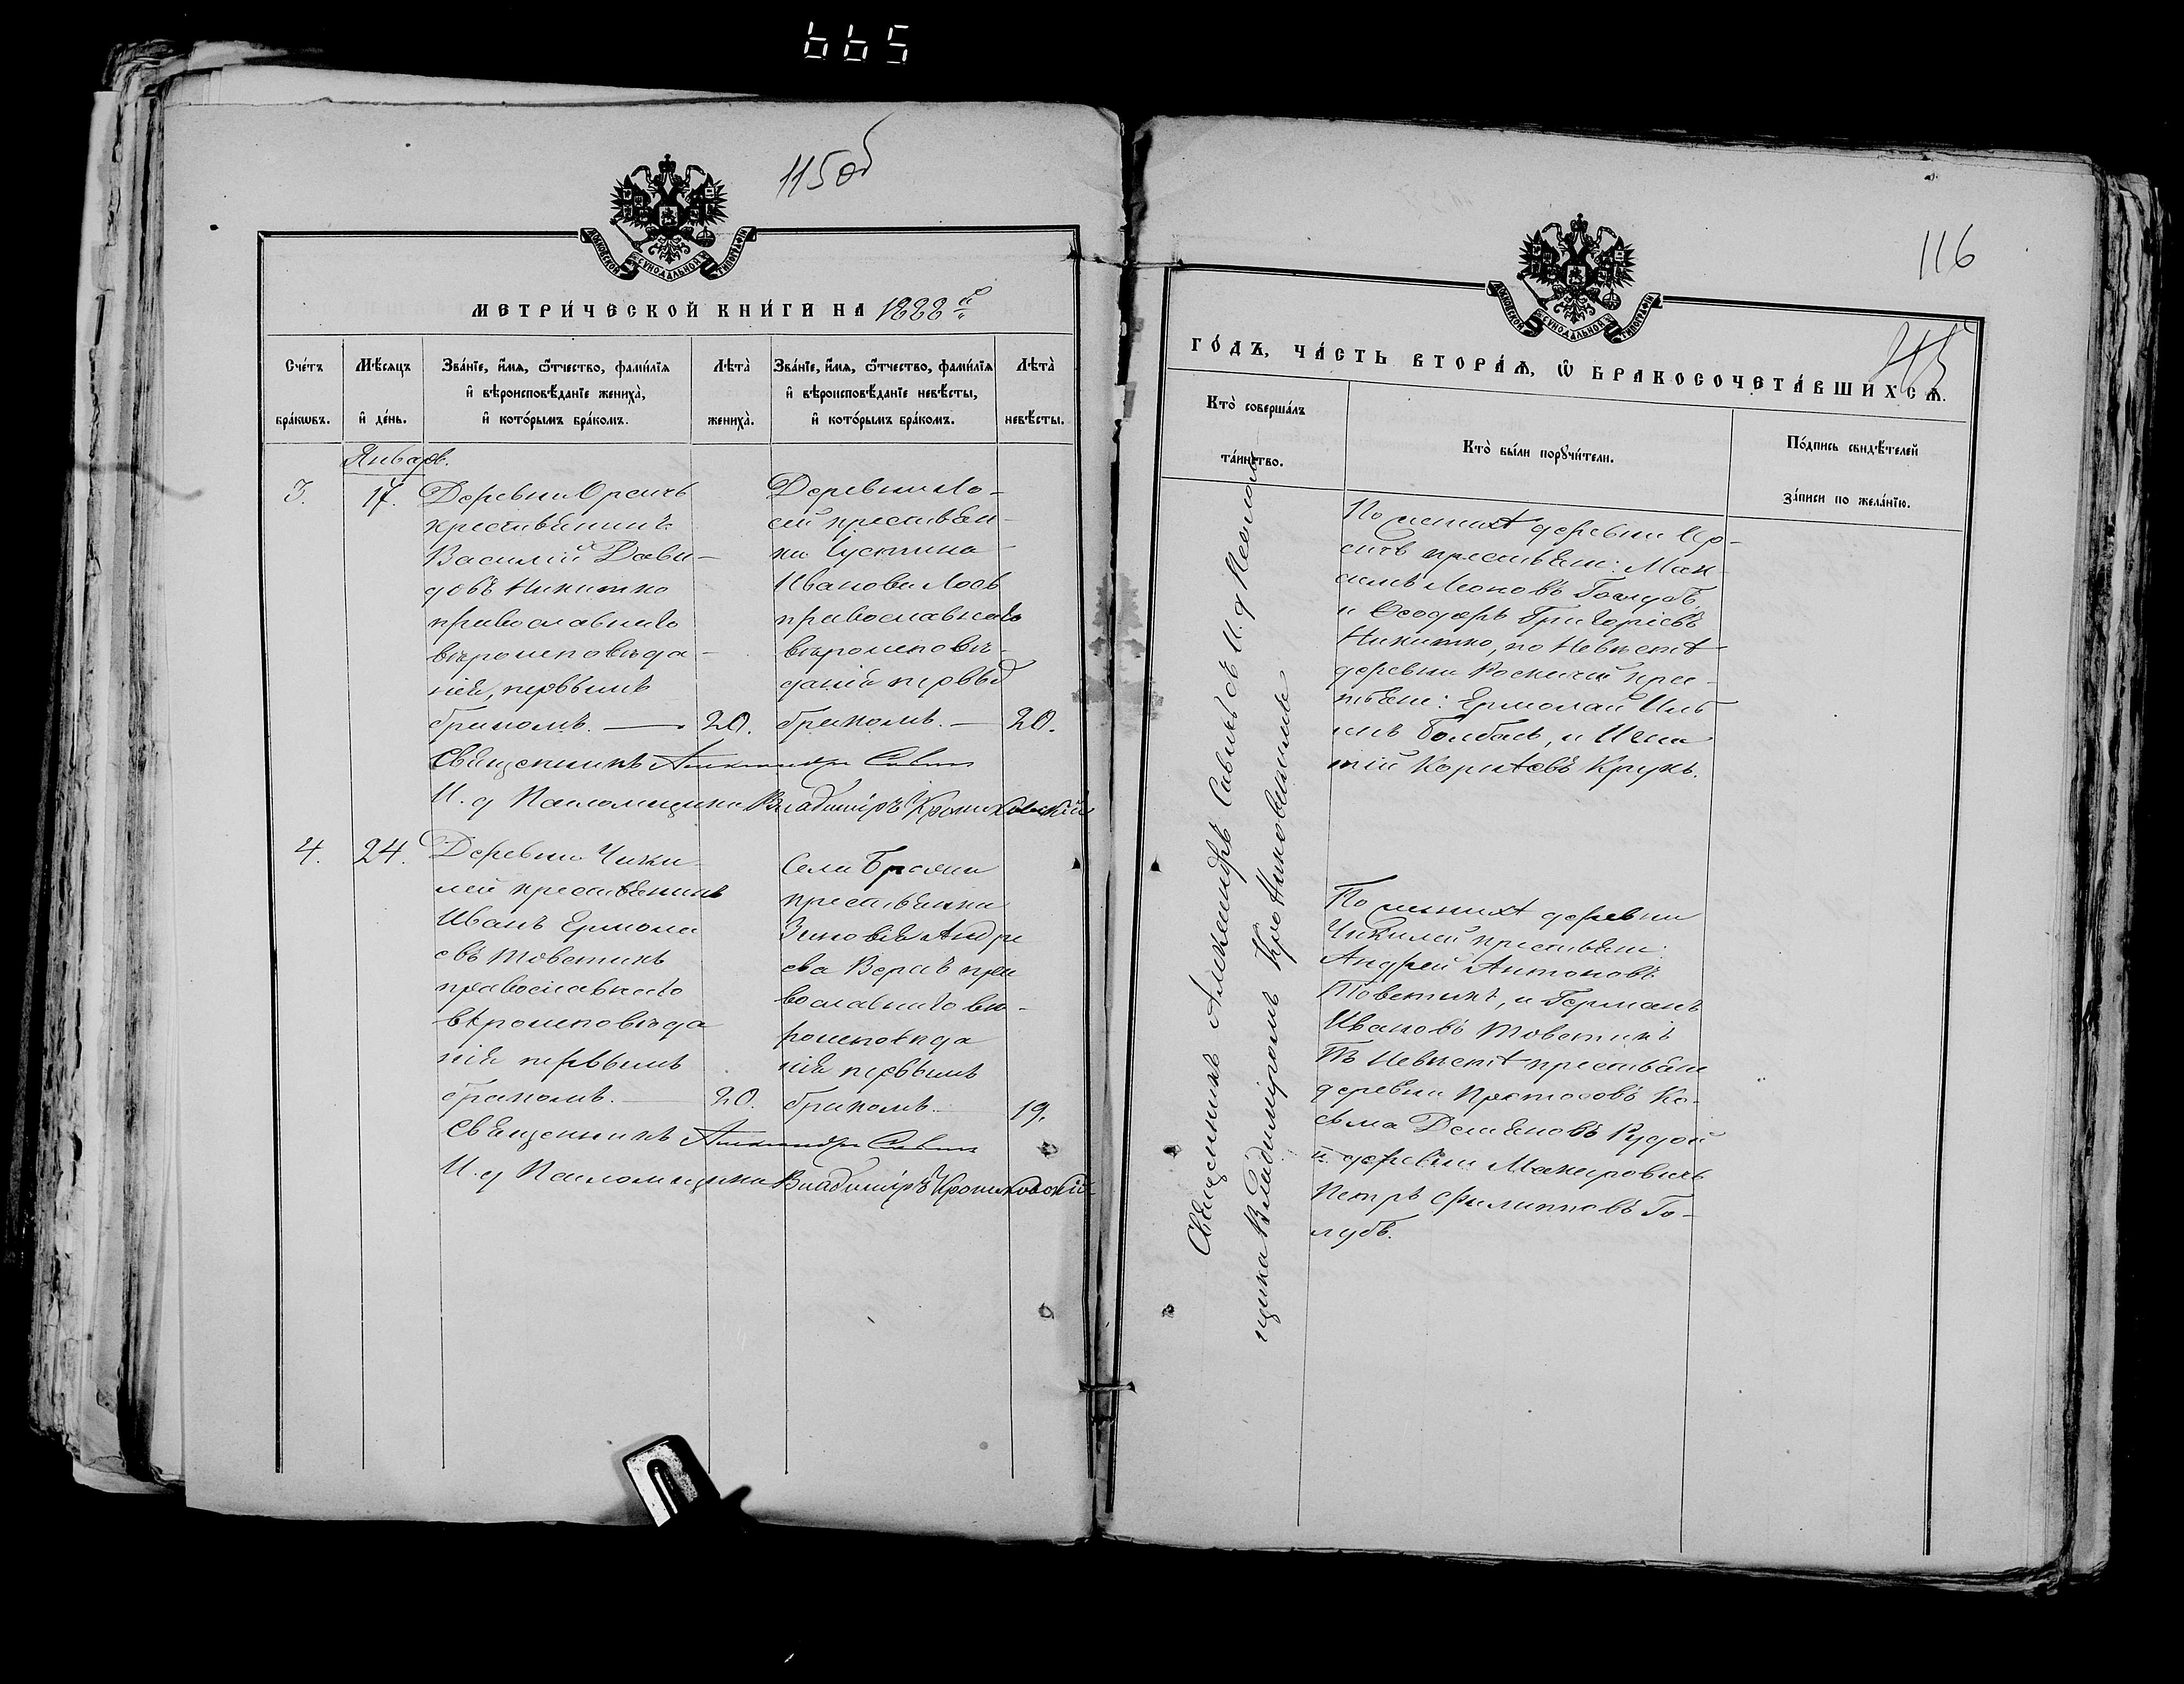 665
115об
МОСКОВСКОЙ СѴНОДАЛЬНОЙ ТИПОГРАФІИ
МЕТРИ́ЧЕСКОЙ КНИ́ГИ НА 1888 й
Сче́тъ бра́кѡвъ.
Мѣ́сяцъ и҆ де́нь.
Зва́нїе, и҆́мѧ, ѻ҆́тчество, фамил́їя
и҆ вѣроисповѣ́данїе жениха̀,
и҆ кото́рымъ бра́комъ.
Лѣта̀ жениха̀.
Зва́нїе, и҆́мѧ, ѻ҆́тчество, фамил́їя
и҆ вѣроисповѣ́данїе невѣ́сты,
и҆ кото́рымъ бра́комъ.
Лѣта̀ невѣ́сты.
Январь.
3.
17.
Деревни Оресичь
крестьянинъ
Василій Дави-
довъ Никитко
православнаго
вѣроисповѣда-
нія, первымъ
бракомъ. — 20.
Деревни Ло-
сей крестьян-
ка Іустина
Иванова Лось
православнаго
вѣроисповѣ-
данія первы
бракомъ. — 20.
Священникъ Александръ Савичъ
И. д Псаломщика Владиміръ
4.
24.
Деревни Чики
лей крестьянинъ
Иванъ Ермола
евъ Товстикъ
православнаго
вѣроисповѣда
нія первымъ
бракомъ. — 20.
Села
крестьянка
Зиновія Андре
ева Верасъ пра
вославнаго вѣ-
роисповѣда
нія первымъ
бракомъ. — 19.
Священникъ Александръ Савичъ
И. д Псаломщика Владиміръ
116
МОСКОВСКОЙ СѴНОДАЛЬНОЙ ТИПОГРАФІИ
ГО́ДЪ, ЧА́СТЬ ВТОРА́Ѧ, Ѡ҆ БРАКОСОЧЕТА́ВШИХСѦ.
Кто̀ соверша́лъ та́инство.
Кто̀ бы́ли порꙋчи́тели.
По́дпись свидѣ́телей
за́писи по жела́нїю.
Священникъ Александръ Савичъ съ И. д Псалом
щика Владиміромъ
По женихѣ деревни Ор-
сичь крестьяне: Мак-
симъ Леоновъ Голубъ,
и Ѳеодоръ Григоріевъ
Никитко, по невѣстѣ
деревни крес-
тьяне: Ермолай Иль
инъ и Игна
тій Корнѣевъ Крукъ.
По женихѣ деревни
Чикилей крестьяне:
Андрей Антоновъ
Товстикъ, и Германъ
Ивановъ Товстикъ
По невѣстѣ крестьяне
деревни Протасовъ Ко-
сьма Демяновъ Рудой
и деревни Макаровичь
Петръ Филипповъ Го-
лубъ.